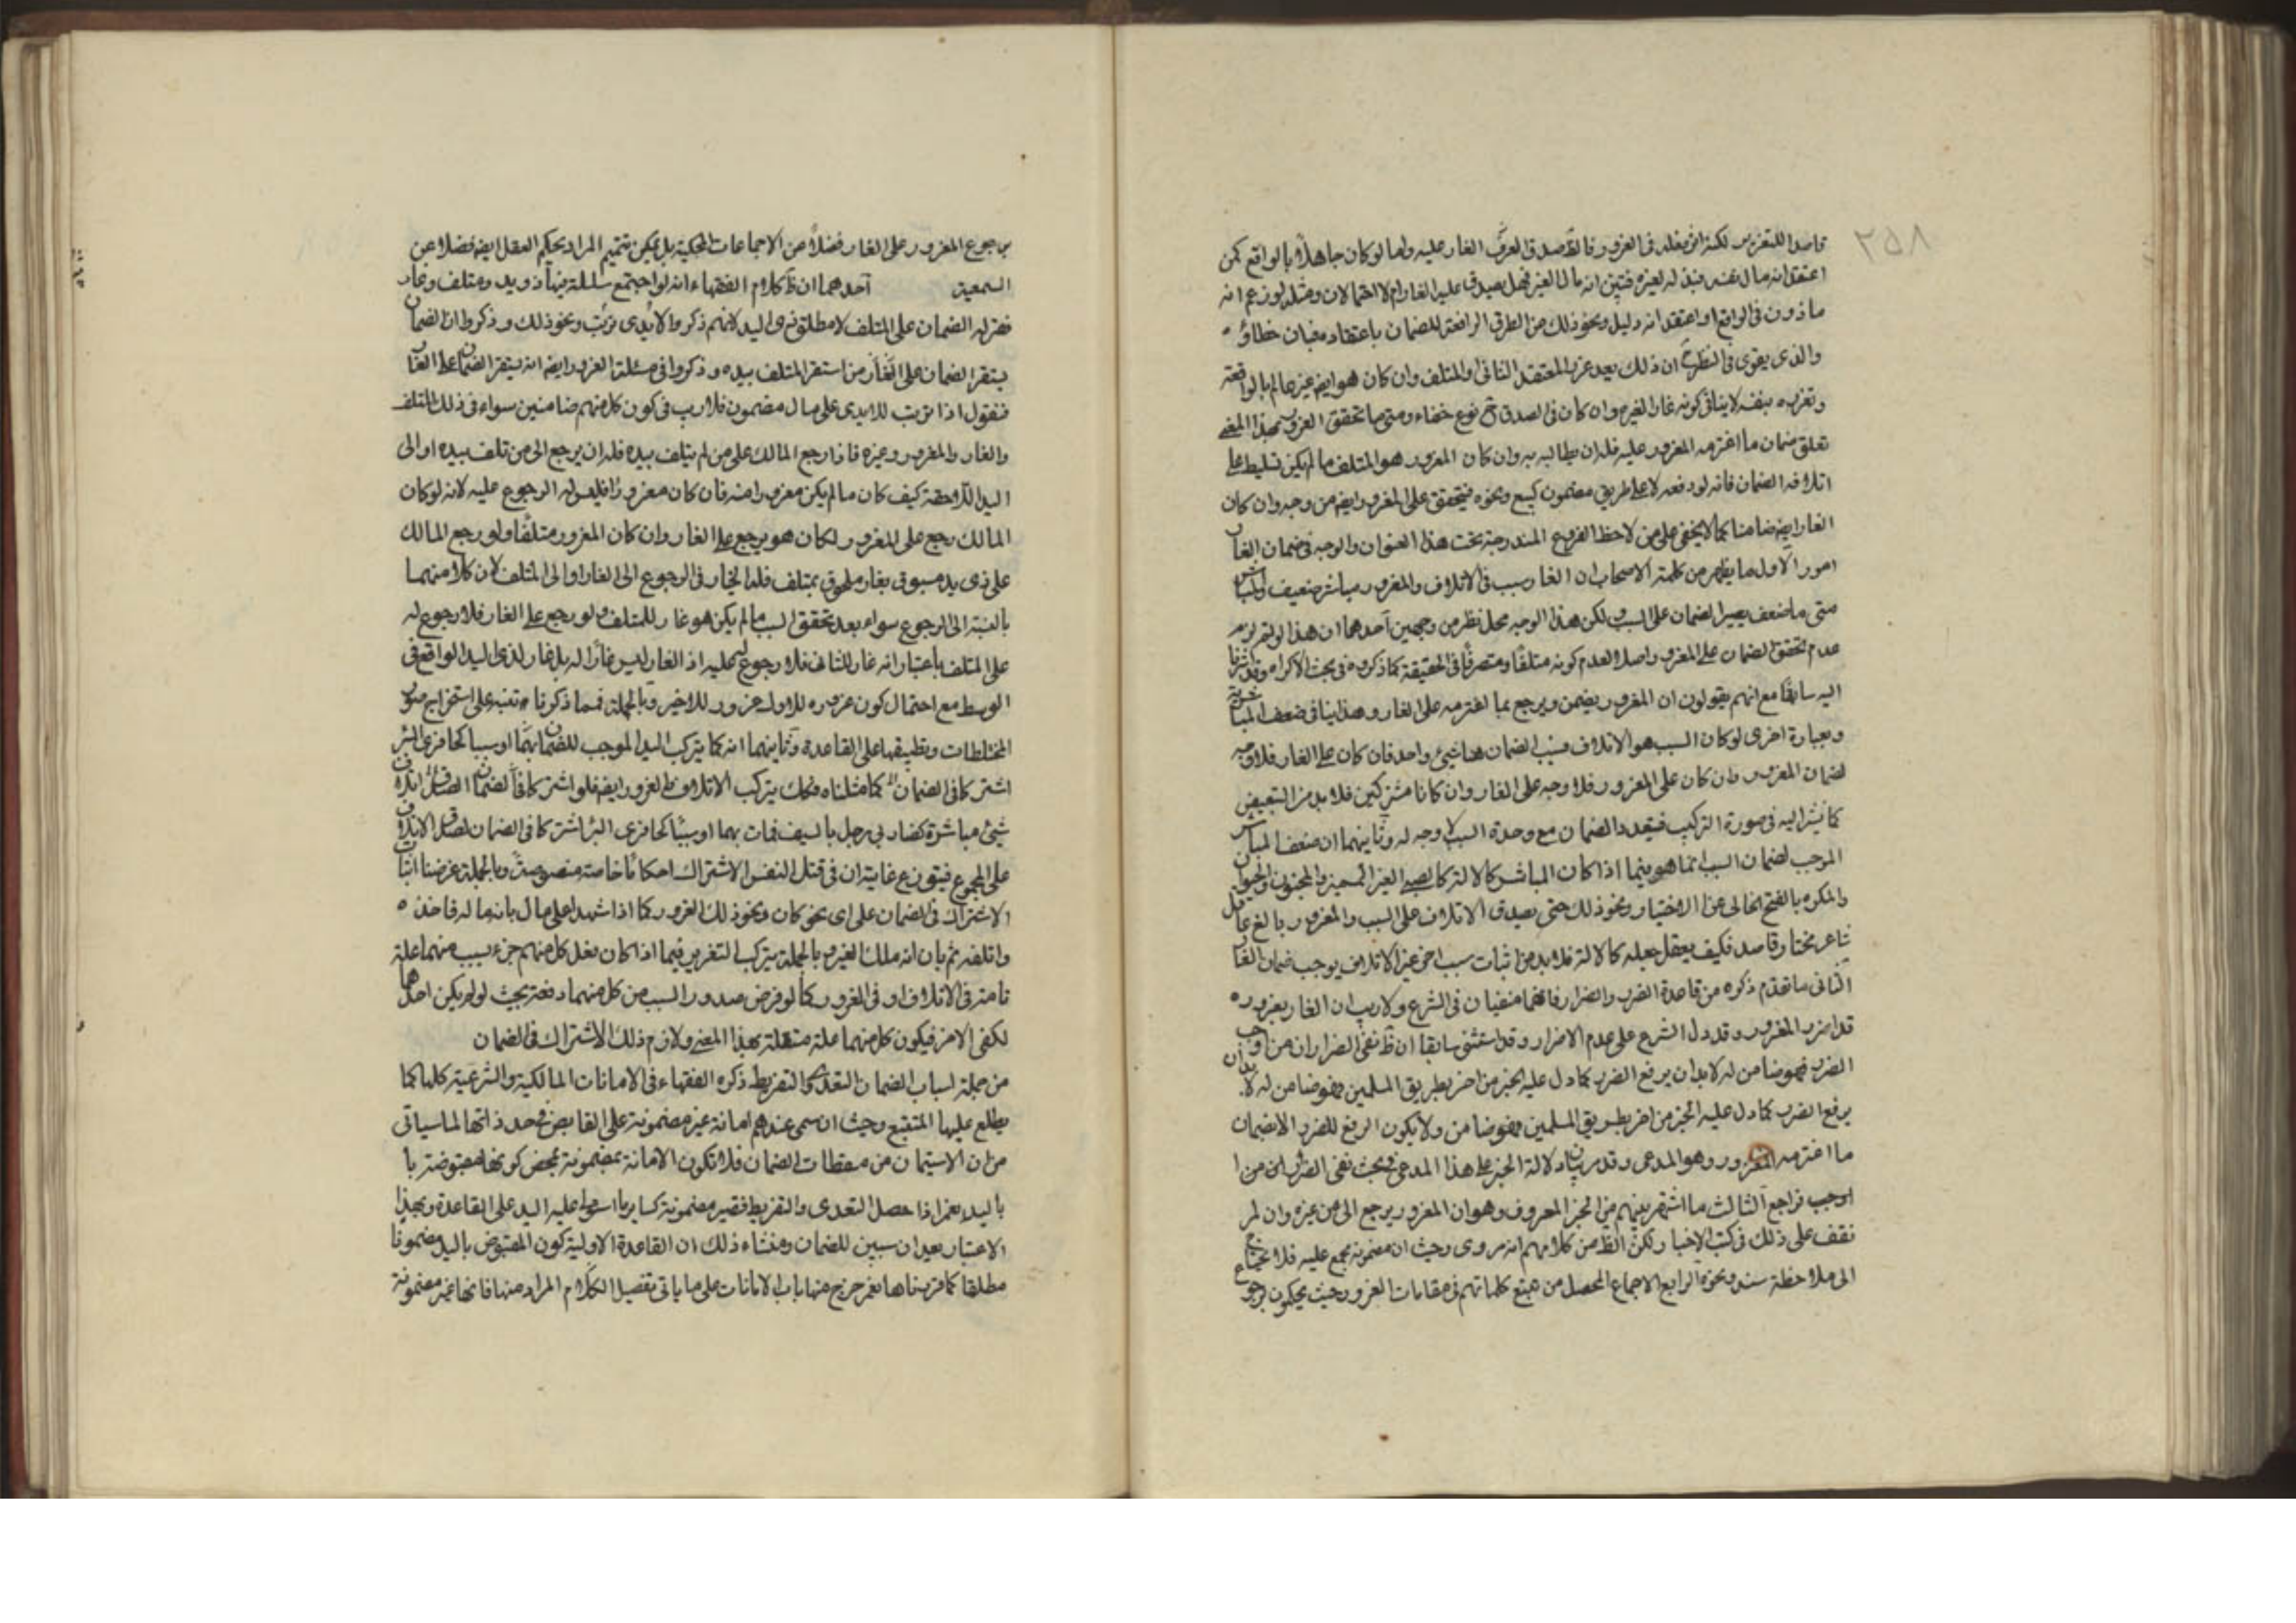 ٢٥٨
قاصدا للتغرير لكنه اثر فعله في الغرور فالظ صدق العرف الغار عليه واما لو كان جاهلاً بالواقع كمن
اعتقد انه مال نفسه فبذله لغيره فتبين انه مال الغير فهل يصدق عليه الغار ام لا احتمالان ومثله لو زعم انه
ماذون في الواقع او اعتقد انه دليل ونحو ذلك من الطرق الرافعة للضمان باعتقاده فبان خطاؤه
والذي يقوى في النظر ان ذلك يعد غرا لمعتقد الثاني او المتلف وان كان هو ايضا غير عالم بالواقعة
وتغريره بنفسه لا ينافي كونه غارا لغيره وان كان في الصدق ح نوع خفاء ومتى ما تحقق الغرور بهذا المعنى
تعلق ضمان ما اغترمه المغرور عليه فله ان يطالبه به وان كان المغرور هو المتلف ما لم يكن تسليط على
اتلافه الضمان فانه لو دفعه لا على طريق مضمون كبيع ونحوه فيتحقق على المغرور ايضا من وجه وان كان
الغار ايضا ضامنا كما لا يخفى على من لاحظ الفروع المندرجة تحت هذا العنوان والوجه في ضمان الغار
امور الاول ما يظهر من كلمة الاصحاب ان الغار سبب في الاتلاف والمغرور مباشر ضعيف والمباشر
متى ما ضعف يصير الضمان على السبب ولكن هذا الوجه محل نظر من وجهين احدهما ان هذا لو تم لزم
عدم تحقق الضمان على المغرور اصلا لعدم كونه متلفا ومتصرفا في الحقيقة كما ذكروه في بحث الاكراه وقد اشرنا
اليه سابقا مع انهم يقولون ان المغرور يضمن ويرجع بما اغترمه على الغار وهذا ينافي ضعف المباشرة
وبعبارة اخرى لو كان السبب هو الاتلاف فسبب الضمان هنا شيئ واحد فان كان على الغار فلا وجه
لضمان المغرور وان كان على المغرور فلا وجه على الغار وان كانا مشتركين فلا بد من التبعيض
كما نشير اليه في صورة التركيب فتعدد الضمان مع وحدة السبب لا وجه له وثانيهما ان ضعف المباشر
الموجب لضمان السبب انما هو فيما اذا كان المباشر كالالة كالصبي الغير المميز والمجنون والحيوان
والمكره بالفتح الخالي عن الاختيار ونحو ذلك حتى يصدق الاتلاف على السبب والمغرور بالغ عاقل
شاعر مختار وقاصد فكيف يعقل جعله كالالة فلا بد من اثبات سبب اخر غير الاتلاف يوجب ضمان الغار
الثاني ما تقدم ذكره من قاعدة الضرر والضرار فانهما منفيان في الشرع ولا ريب ان الغار بغروره
قد اضر بالمغرور وقد دل الشرع على عدم الاضرار وقد استفنى سابقا ان نفي الضرار ان من اوجب
الضرر فهو ضامن له لا بد ان يرفع الضرر كما دل عليه الخبر من اضر بطريق المسلمين فهو ضامن له لا بد ان
يرفع الضرر كما دل عليه الخبر من اضر بطريق المسلمين فهو ضامن ولا يكون الرفع للضرر الا بضمان
ما اغترمه المغرور وهو المدعى وقد بينا دلالة الخبر على هذا المدعى في بحث نفي الضرر من
اوجب فراجع الثالث ما اشتهر بينهم من الخبر المعروف وهو ان المغرور يرجع الى من غره وان لم
نقف على ذلك في كتب الاخبار لكن الظ من كلامهم انه مروى وحيث ان مضمونه مجمع عليه فلا نحتاج
الى ملاحظة سنده ونحوه الرابع الاجماع المحصل من تتبع كلماتهم في مقامات الغرور حيث يحكمون برجوع
برجوع المغرور على الغار فضلاً عن الاجماعات المحكية بل يمكن تتميم المراد بحكم العقل ايضا فضلا عن
السمعين احدهما ان ظ كلام الفقهاء انه لو اجتمع سلسلة فيها ذويد ومتلف وغار
الضمان على المتلف لا مطلق ذي اليد لانهم ذكروا الايدي ترتب ونحو ذلك وذكروا ان الضمان
يستقر الضمان على الغار من استقر المتلف بيده وذكروا في مسئلة الغرور ايضا انه يستقر الضمان على الغار
فنقول اذا ترتب الايدي على مال مضمون فلا ريب في كون كل منهم ضامنين سواء في ذلك المتلف
والغار والمغرور وغيره فاذا رجع المالك على من لم يتلف بيده فله ان يرجع الى من تلف بيده او الى
اليد اللاحقة كيف كان ما لم يكن مغرورا منه فان كان مغرورا فليس له الرجوع عليه لانه لو كان
المالك رجع على المغرور لكان هو يرجع على الغار وان كان المغرور متلفا ولو رجع المالك
على ذي يد مسبوق بغار ملحوق بمتلف فله الخيار في الرجوع الى الغار او الى المتلف لان كلا منهما
بالنسبة الى الرجوع سواء بعد تحقق السبب ما لم يكن هو غار للمتلف ولو رجع على الغار فلا رجوع له
على المتلف باعتبار انه غار للثاني فلا رجوع له عليه اذ الغار ليس غارا له بل غار لذي اليد الواقع في
الوسط مع احتمال كون غروره للاول غرور للاخير وبالجملة فما ذكرنا تنبه على استخراج صور
المختلطات وتطبيقها على القاعدة وثانيهما انه كما يتركب اليد الموجب للضمان او سببا كحافري البئر
اشتركا في الضمان كما مثلناه فكك يتركب الاتلاف والغرور ايضا فلو اشتركا في الضمان لصدق اتلاف
شيئ مباشرة كضاربي رجل بالسيف فمات بهما او سببا كحافري البئر اشتركا في الضمان لصدق الاتلاف
على المجموع فيتوزع غاية ان في قتل النفس الاشتراك احكاما خاصة منصوصة وبالجملة غرضنا اثبات
الاشتراك في الضمان على اي نحو كان ونحو ذلك الغرور كما اذا شهدا على مال بانه ماله فاخذه
واتلفه ثم بان انه ملك الغير وبالجملة يتركب التغرير فيما اذا كان فعل كل منهم جزء سبب منهما علة
تامة في الاتلاف او في الغرور كما لو فرض صدور السبب من كل منهما دفعة بحيث لو لم يكن احدهما
لكفى الاخر فيكون كل منهما علة مستقلة بهذا المعنى ولازم ذلك الاشتراك في الضمان
من جملة اسباب الضمان التعدي والتفريط ذكره الفقهاء في الامانات المالكية والشرعية كلها كما
يطلع عليها المتتبع وحيث ان سمى عندهم امانة غير مضمونة على القابض في حد ذاتها لما سياتي
من ان الاستيمان من مسقطات الضمان فلا تكون الامانة مضمونة بمحض كونها مقبوضة با
باليد نعم اذا حصل التعدي والتفريط فتصير مضمونة كساير ما استولى عليه اليد على القاعدة وبهذا
الاعتبار يعدان سببين للضمان ومنشاء ذلك ان القاعدة الاولية كون المقبوض باليد مضمونا
مطلقا كما قررناها نعم خرج منها باب الامانات على ما ياتي تفصيل الكلام المراد منها فانها غير مضمونة